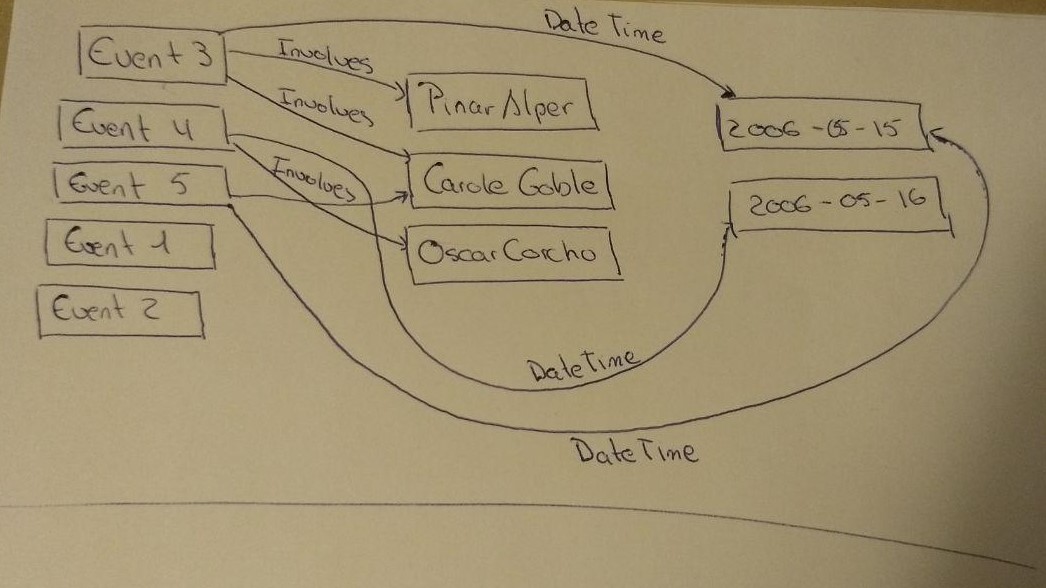 Event 3
Event 4
Event 5
Event 1
Event 2
Involves
Involves
Involves
Pinar Alper
Carole Goble
Oscar Corcho
Date Time
2006-05-15
2006-05-16
DateTime
DateTime